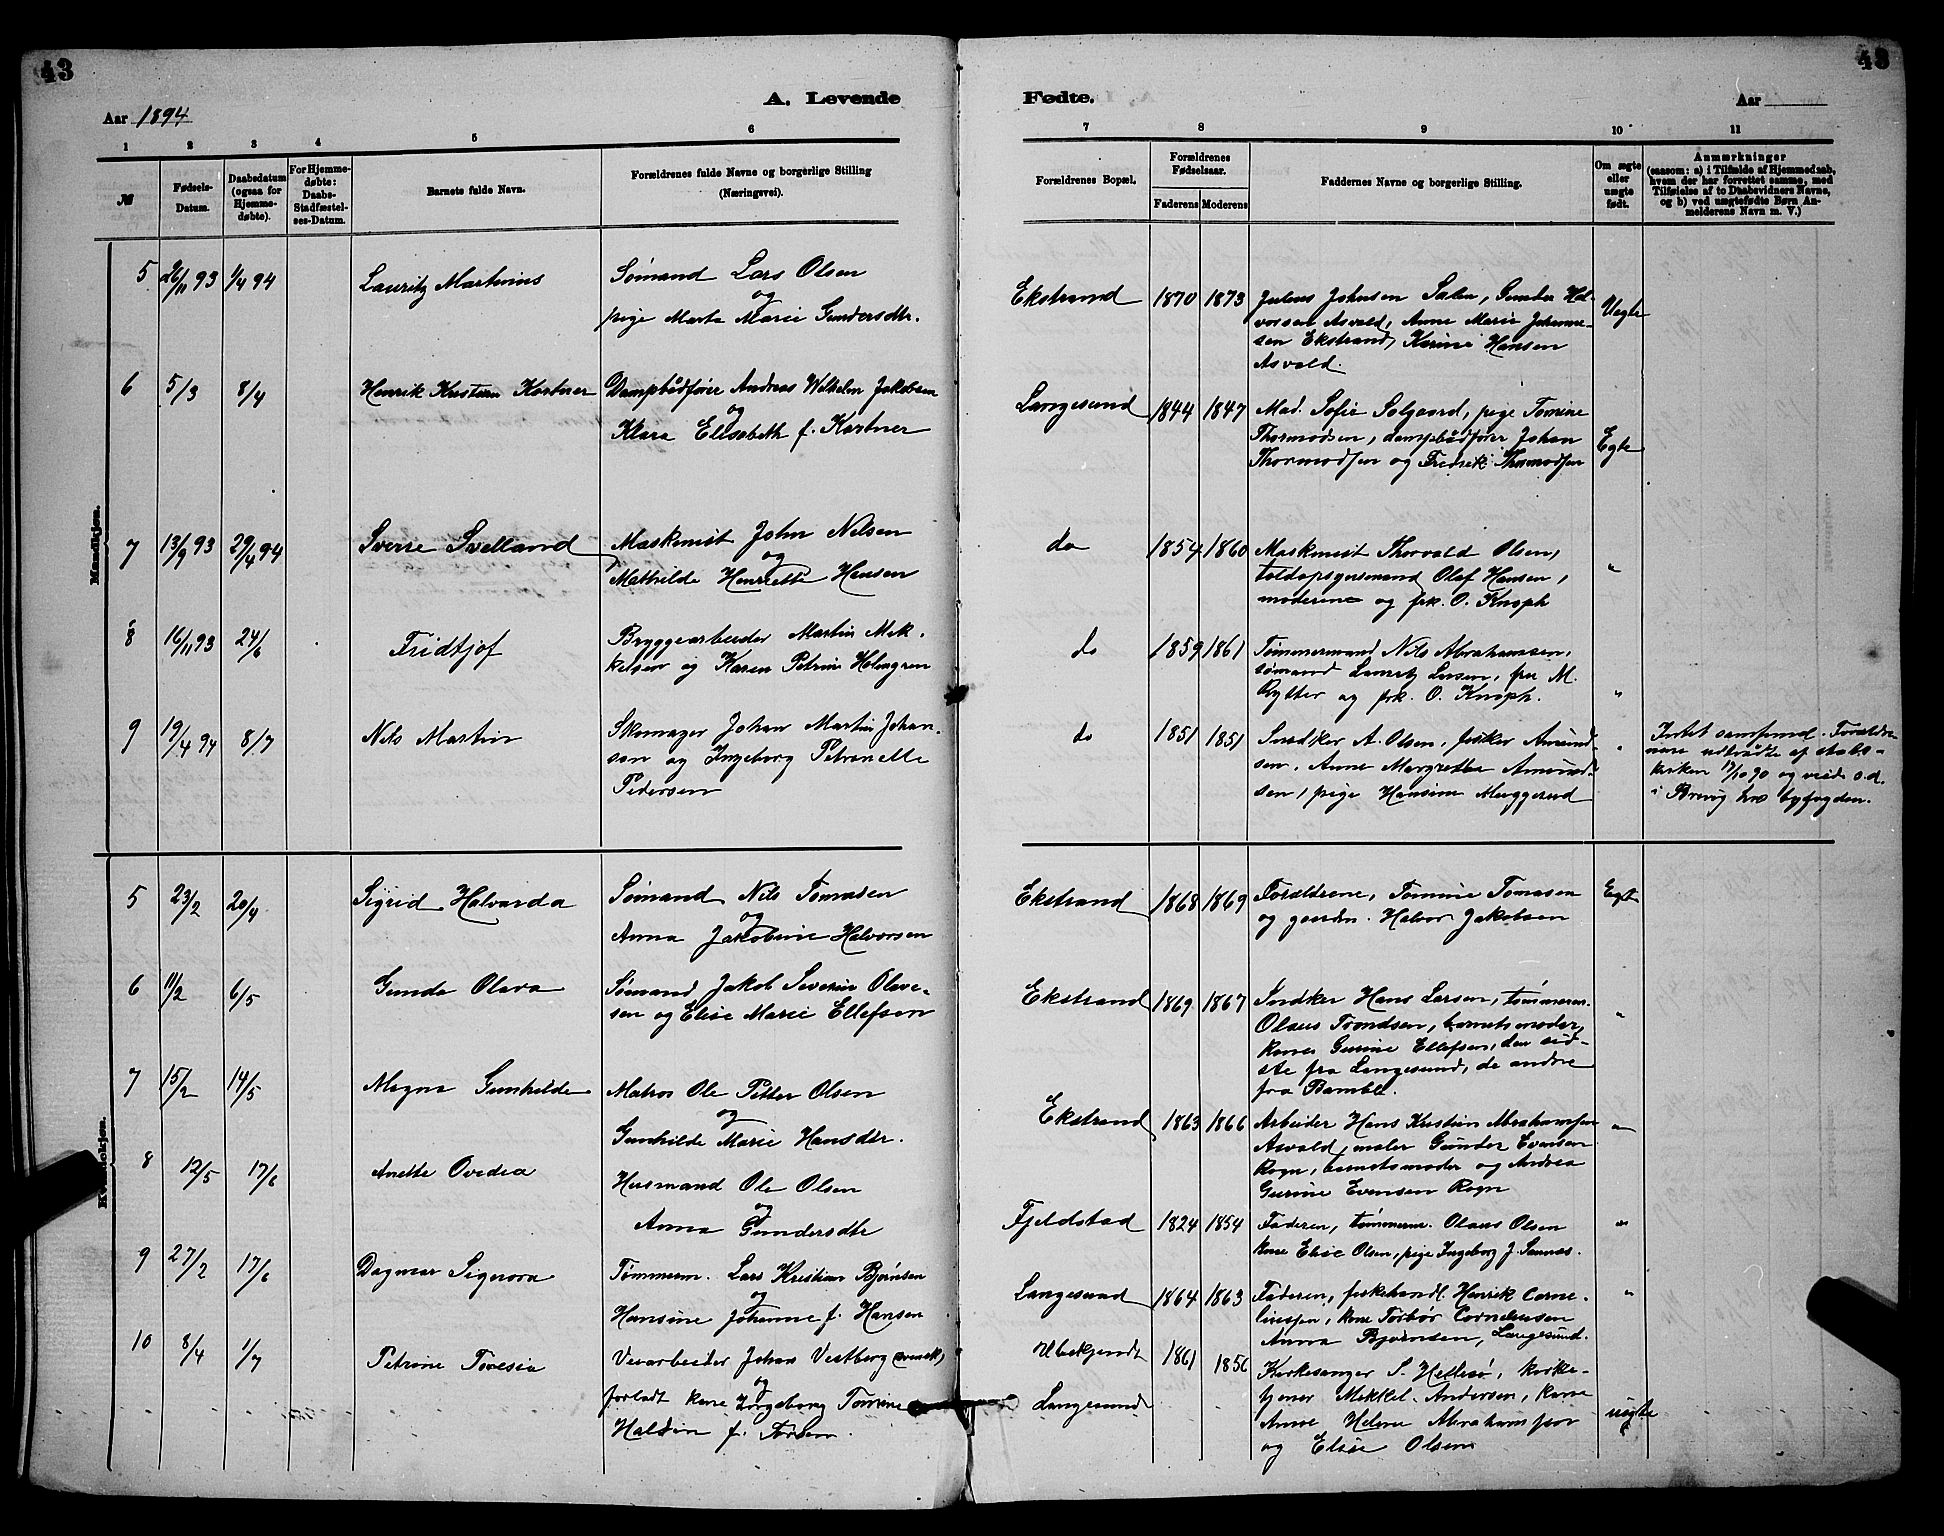 43
43
A. Levende
Fødte.
Aar 1894
Aar
1 2 3 4 5 6 7 8 9 10 11
№
Fødsels-Datum.
Daabsdatum (ogsaa for Hjemmedøbte).
For Hjemmedøbte: Daabs-Stadfæstelses-Datum.
Barnets fulde Navn.
Forældrenes fulde Navne og borgerlige Stilling (Næringsvei).
Forældrenes Bopæl.
Forældrenes Fødselsaar.
Faderens Moderens
Faddernes Navne og borgerlige Stilling.
Om ægte eller uægte født.
Anmærkninger
(saasom: a) i Tilfælde af Hjemmedaab, hvem der har forrettet samme, med Tilføielse af to Daabsvidners Navne, og b) ved uægtefødte Børn Anmelderens Navn m. V.)
Mandkjøn.
5 26/11 93 1/4 94 Lauritz Martinius
Sømand Lars Olsen
og
pige Marta Marie Gundersdtr.
Ekstrand 1870 1873
Julius Johnsen Salen, Gunder Hal-
vorsen Asvald, Anne Marie Johanne-
sen Ekstrand, Karine Hansen
Asvald.
Uegte
6 5/3 8/4 Henrik Kristian Kortner
Dampbådfører Andreas Wilhelm Jakobsen
og
Klara Elisabeth f. Kortner
Langesund 1844 1847
Mad. Sofie Solgaard, pige Tomine
Thormodsen, dampbådfører Johan
Thormodsen og Fredrik Thormodsen
Egte
7 13/9 93 29/4 94 Sverre Svelland
Maskinist John Nilsen
og
Mathilde Henriette Hansen
do 1854 1860
Maskinist Thorvald Olsen,
toldopsynsmand Olaf Hansen,
moderen og frk. O. Knoph
"
8 16/11 93 24/6 Fridtjof
Bryggearbeider Martin Mik-
kelsen og Karen Petrine Holmgren
do 1859 1861
Tømmermand Nils Abrahamssen,
sømand Lauritz Larsen, fru M.
Rytter og frk. O. Knoph.
"
9 19/4 94 8/7 Nils Martin
Skomager Johan Martin Johan-
sen og Ingeborg Petronelle
Pedersen
do 1851 1851
Snedker A. Olsen, fisker Amund-
sen, Anne Margrethe Amund-
sen, pige Hansine Muggerud
"
Intet samfund. Foreldre-
nare udtrådte af stats-
kirken 17/10 90 og viede s.d.
i Brevig hos byfogden.
Kvindekjøn.
5 23/2 20/4 Sigrid Halvarda
Sømand Nils Tomasen
og
Anna Jakobine Halvorsen
Ekstrand 1868 1869
Foreldrene, Tomine Tomasen
og gaardm. Halvor Jakobsen
Egte
6 11/2 6/5 Gunda Olava
Sømand Jakob Severin Olave-
sen og Elise Marie Ellefsen
Ekstrand 1869 1867
Snedker Hans Larsen, tømmerm.
Olaus Trondsen, barnets moder,
kone Gurine Ellefsen, den sid-
ste fra Langesund, de andre
fra Bamble.
"
7 15/2 14/5 Magna Gunhilde
Matros Ole Petter Olsen
og
Gunhilde Marie Hansdtr.
Ekstrand 1863 1866
Arbeider Hans Kristian Abrahamsen
Asvald, maler Gunder Evensen
Rogn, barnets moder og Andrea
Gurine Evensen Rogn
"
8 12/5 17/6 Anette Ovedia
Husmand Ole Olsen
og
Anna Gundersdtr
Fjeldstad 1824 1854
Faderen, tømmerm. Olaus Olsen
kone Elise Olsen, pige Ingeborg J. Sannæs.
"
9 27/2 17/6 Dagmar Signora
Tømmerm. Lars Kristian Bjørnsen
og
Hansine Johanne f. Hansen
Langesund 1864 1863
Faderen, fiskehandl. Henrik Corne-
liussen, kone Torbør Corneliussen
Anna Bjørnsen, Langesund.
"
10 8/4 1/7 Petrine Tovesia
Veiarbeider Johan Vestberg (svensk)
og
forladt kone Ingeborg Tomine
Haldin f. Torsen.
Ubekjendt 1861 1856
Langesund
Kirkesanger S. Hellesø, kirke-
tjener Mikkel Andersen, kone
Anne Helene Abrahamssen
og Elise Olsen
uegte